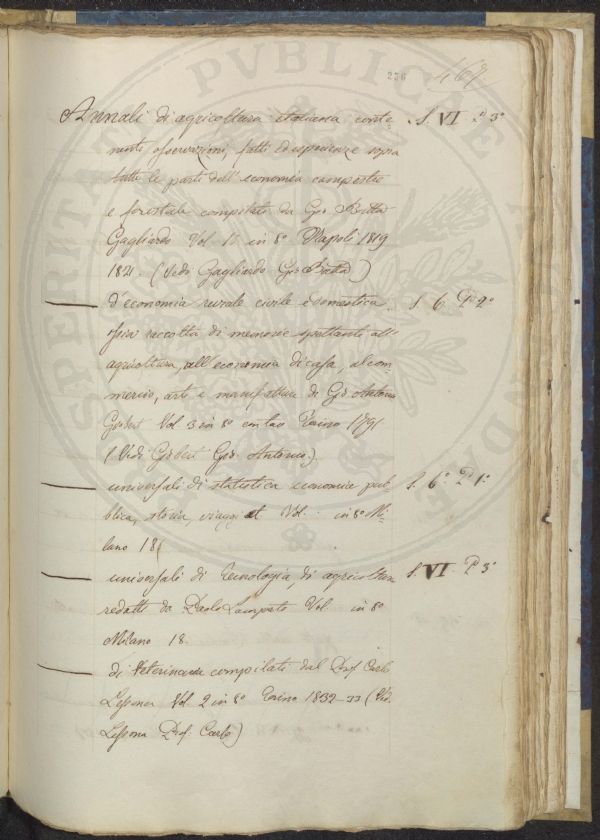 236 467
Annali di agricoltura italiana conte- S. VI. P. 3°
nenti osservazioni, fatti ed esperienze sopra
tutte le parti dell'economia campestre
e forestale compilati da Gio Batta
Gagliardo Vol. 11. in 8° Napoli 1819
1821. (Vedi Gagliardo Gio Batta)
—— d'economia rurale civile e domestica S. 6. P. 2°
ossia raccolta di memorie spettanti all'
agricoltura, all'economia di casa, al com
mercio, arti e manifatture di Gio Antonio
Giobert Vol 3 in 8° Torino 1791
(Vedi Giobert Gio Antonio)
—— universali di statistica economia pub- S. 6° P. 1°
blica, storia, viaggi et Vol. in 8° Mi-
lano 18
—— universali di Tecnologia, di agricoltura S. VI. P. 3°
redatti da Paolo Lampato Vol. in 8°
Milano 18.
—— di Veterinaria compilati dal Prof. Carlo
Lessona Vol. 2 in 8° Torino 1832-33 (Vedi
Lessona Prof. Carlo)